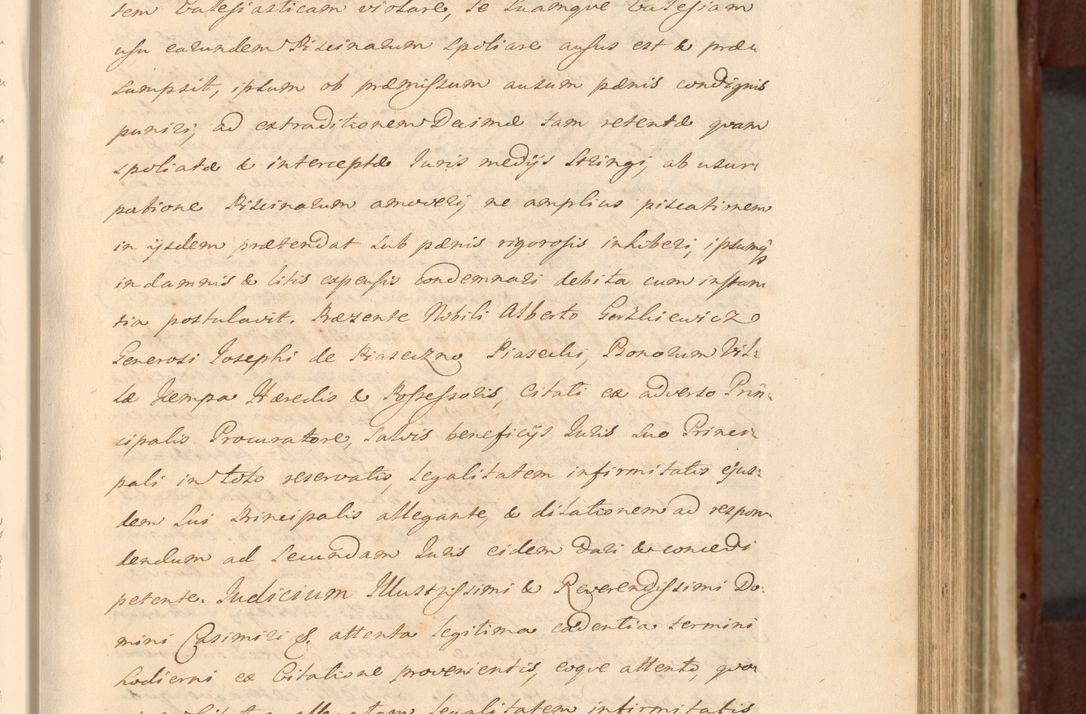 tem Ecclesiasticam violare, se suamque Ecclesiam
usu earundem Piscinarum spoliare ausus est & præ-
sumpsit, ipsum ob præmissum ausum pænis condignis
puniri, ad extraditionem Decimæ tam retentæ quam
spoliatæ & interceptæ Juris medijs stringi, ab usur-
patione Piscinarum amoveri, ne amplius piscationem
in ijsdem prætendat sub pænis rigorosis inhiberi, ipsumq
in damnis & litis expensis condemnari debita cum instan-
tia postulavit. Præsente Nobili Alberto Gorzkiewicz
Generosi Josephi de Piaseczno Piasecki, Bonorum Vil-
læ Kempa Hæredis & Possessoris, Citati ex adverso Prin-
cipalis Procuratore, salvis beneficijs Juris suo Princi-
pali in toto reservatis, legalitatem infirmitatis ejus-
dem sui Principalis allegante, & dilationem ad respon-
dendum ad secundam Juris eidem dari & concedi
petente. Judicium Illustrissimi & Reverendissimi Do-
mini Casimiri &. attenta legitima cadentia termini
hodierni ex Citatione provenientis, eoque attento, quo-
legalitatem infirmitatis